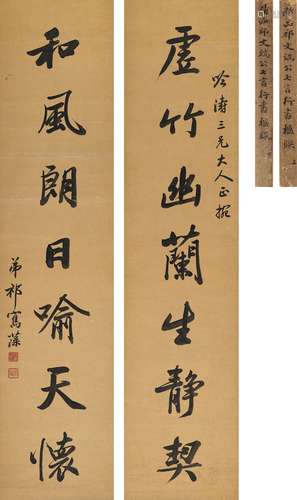 虛竹幽蘭生靜契
吟濤三兄大人正挽
和風朗日喻天懷
弟祁寯藻
祁文端公七言行書楹聯